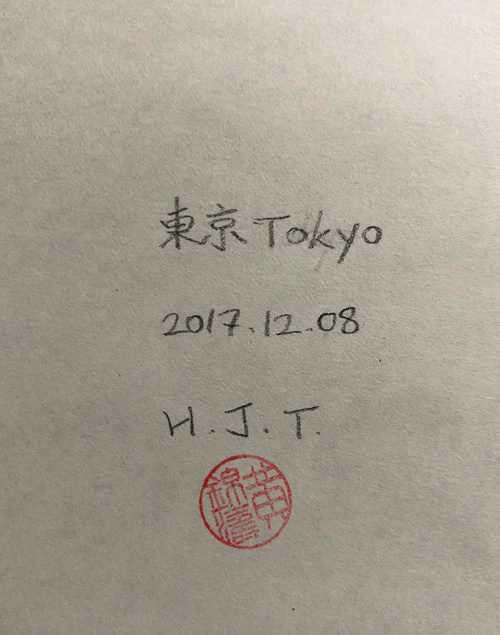 東京Tokyo
2017.12.08
H.J.T.
黄
錦濤